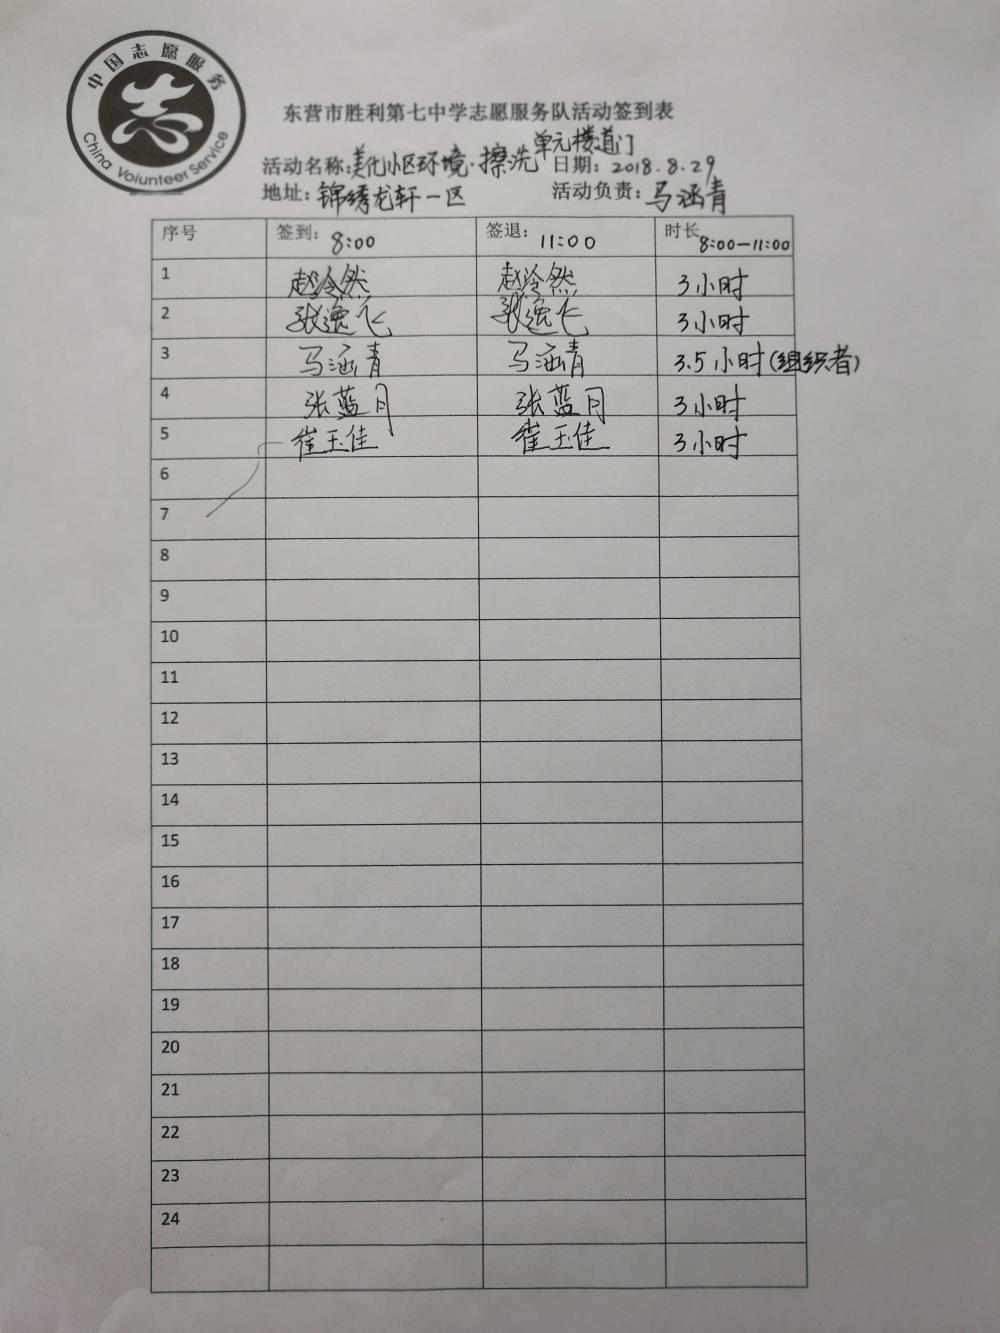 中国志愿服务
China Volunteer Service
东营市胜利第七中学志愿服务队活动签到表
活动名称:美化小区环境·擦洗单元楼道门 日期: 2018.8.29
地址: 锦绣龙轩一区 活动负责: 马涵青
序号 签到: 8:00 签退: 11:00 时长 8:00-11:00
1 赵泠然 赵泠然 3小时
2 张逸飞 张逸飞 3小时
3 马涵青 马涵青 3.5小时(组织者)
4 张蓝月 张蓝月 3小时
5 崔玉佳 崔玉佳 3小时
6
7
8
9
10
11
12
13
14
15
16
17
18
19
20
21
22
23
24